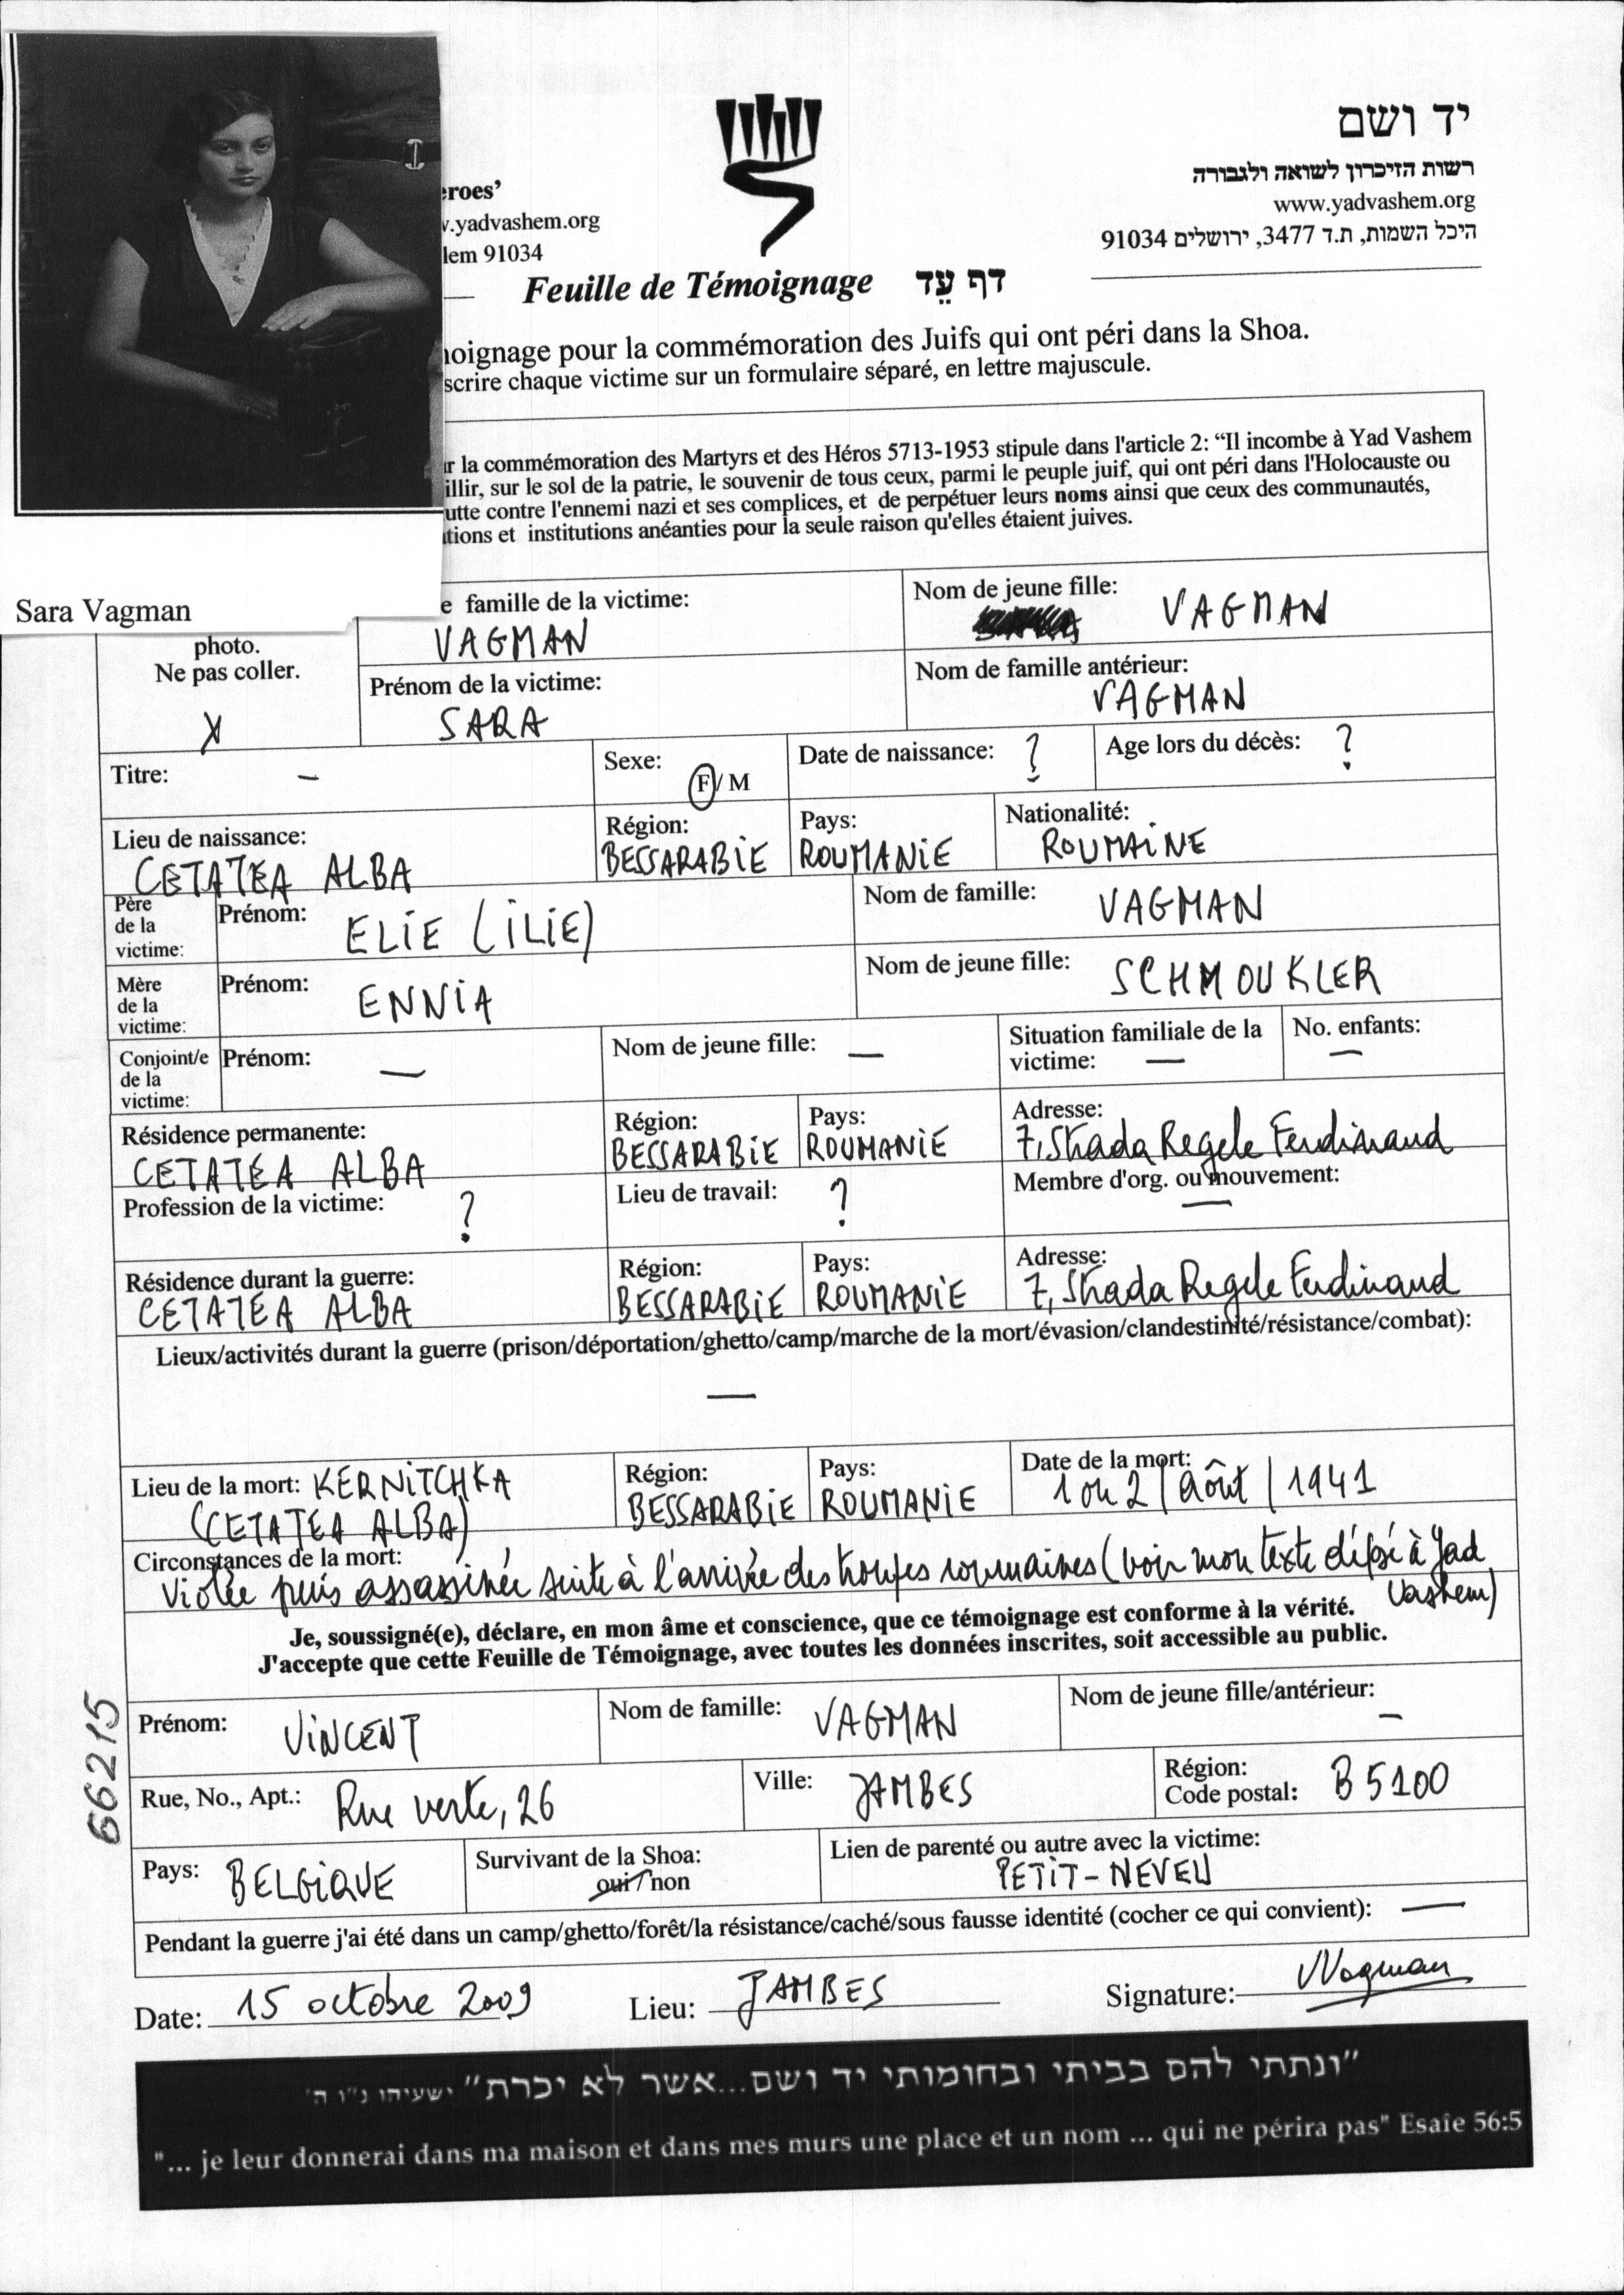 יד ושם
רשות הזיכרון לשואה ולגבורה
eroes'
www.yadvashem.org
v.yadvashem.org
היכל השמות, ת.ד 3477, ירושלים 91034
lem 91034
Feuille de Témoignage דף עֵד
oignage pour la commémoration des Juifs qui ont péri dans la Shoa.
scrire chaque victime sur un formulaire séparé, en lettre majuscule.
r la commémoration des Martyrs et des Héros 5713-1953 stipule dans l'article 2: "Il incombe à Yad Vashem
illir, sur le sol de la patrie, le souvenir de tous ceux, parmi le peuple juif, qui ont péri dans l'Holocauste ou
utte contre l'ennemi nazi et ses complices, et de perpétuer leurs noms ainsi que ceux des communautés,
tions et institutions anéanties pour la seule raison qu'elles étaient juives.
Sara Vagman
photo.
Ne pas coller.
X
e famille de la victime:
VAGMAN
Nom de jeune fille:
VAGMAN
Prénom de la victime:
SARA
Nom de famille antérieur:
VAGMAN
Titre: –
Sexe:
F/M
Date de naissance: ?
Age lors du décès: ?
Lieu de naissance:
CETATEA ALBA
Région:
BESSARABIE
Pays:
ROUMANIE
Nationalité:
ROUMAINE
Père
de la
victime:
Prénom: ELIE (ILIE)
Nom de famille: VAGMAN
Mère
de la
victime:
Prénom: ENNIA
Nom de jeune fille: SCHMOUKLER
Conjoint/e
de la
victime:
Prénom: —
Nom de jeune fille: —
Situation familiale de la
victime: —
No. enfants:
—
Résidence permanente:
CETATEA ALBA
Région:
BESSARABIE
Pays:
ROUMANIE
Adresse:
7, Strada Regele Ferdinand
Profession de la victime: ?
Lieu de travail: ?
Membre d'org. ou mouvement:
—
Résidence durant la guerre:
CETATEA ALBA
Région:
BESSARABIE
Pays:
ROUMANIE
Adresse:
7, Strada Regele Ferdinand
Lieux/activités durant la guerre (prison/déportation/ghetto/camp/marche de la mort/évasion/clandestinité/résistance/combat):
—
Lieu de la mort: KERNITCHKA
(CETATEA ALBA)
Région:
BESSARABIE
Pays:
ROUMANIE
Date de la mort:
1 ou 2 / août / 1941
Circonstances de la mort:
Violée puis assassinée suite à l'arrivée des troupes roumaines (voir mon texte déposé à Yad
Vashem)
Je, soussigné(e), déclare, en mon âme et conscience, que ce témoignage est conforme à la vérité.
J'accepte que cette Feuille de Témoignage, avec toutes les données inscrites, soit accessible au public.
66215
Prénom: VINCENT
Nom de famille: VAGMAN
Nom de jeune fille/antérieur:
–
Rue, No., Apt.: Rue verte, 26
Ville: JAMBES
Région:
Code postal: B 5100
Pays: BELGIQUE
Survivant de la Shoa:
oui/non
Lien de parenté ou autre avec la victime:
PETIT-NEVEU
Pendant la guerre j'ai été dans un camp/ghetto/forêt/la résistance/caché/sous fausse identité (cocher ce qui convient): —
Date: 15 octobre 2009 Lieu: JAMBES Signature: Vagman
"ונתתי להם בביתי ובחומותי יד ושם...אשר לא יכרת" ישעיהו נ"ו ה'
"... je leur donnerai dans ma maison et dans mes murs une place et un nom ... qui ne périra pas" Esaïe 56:5